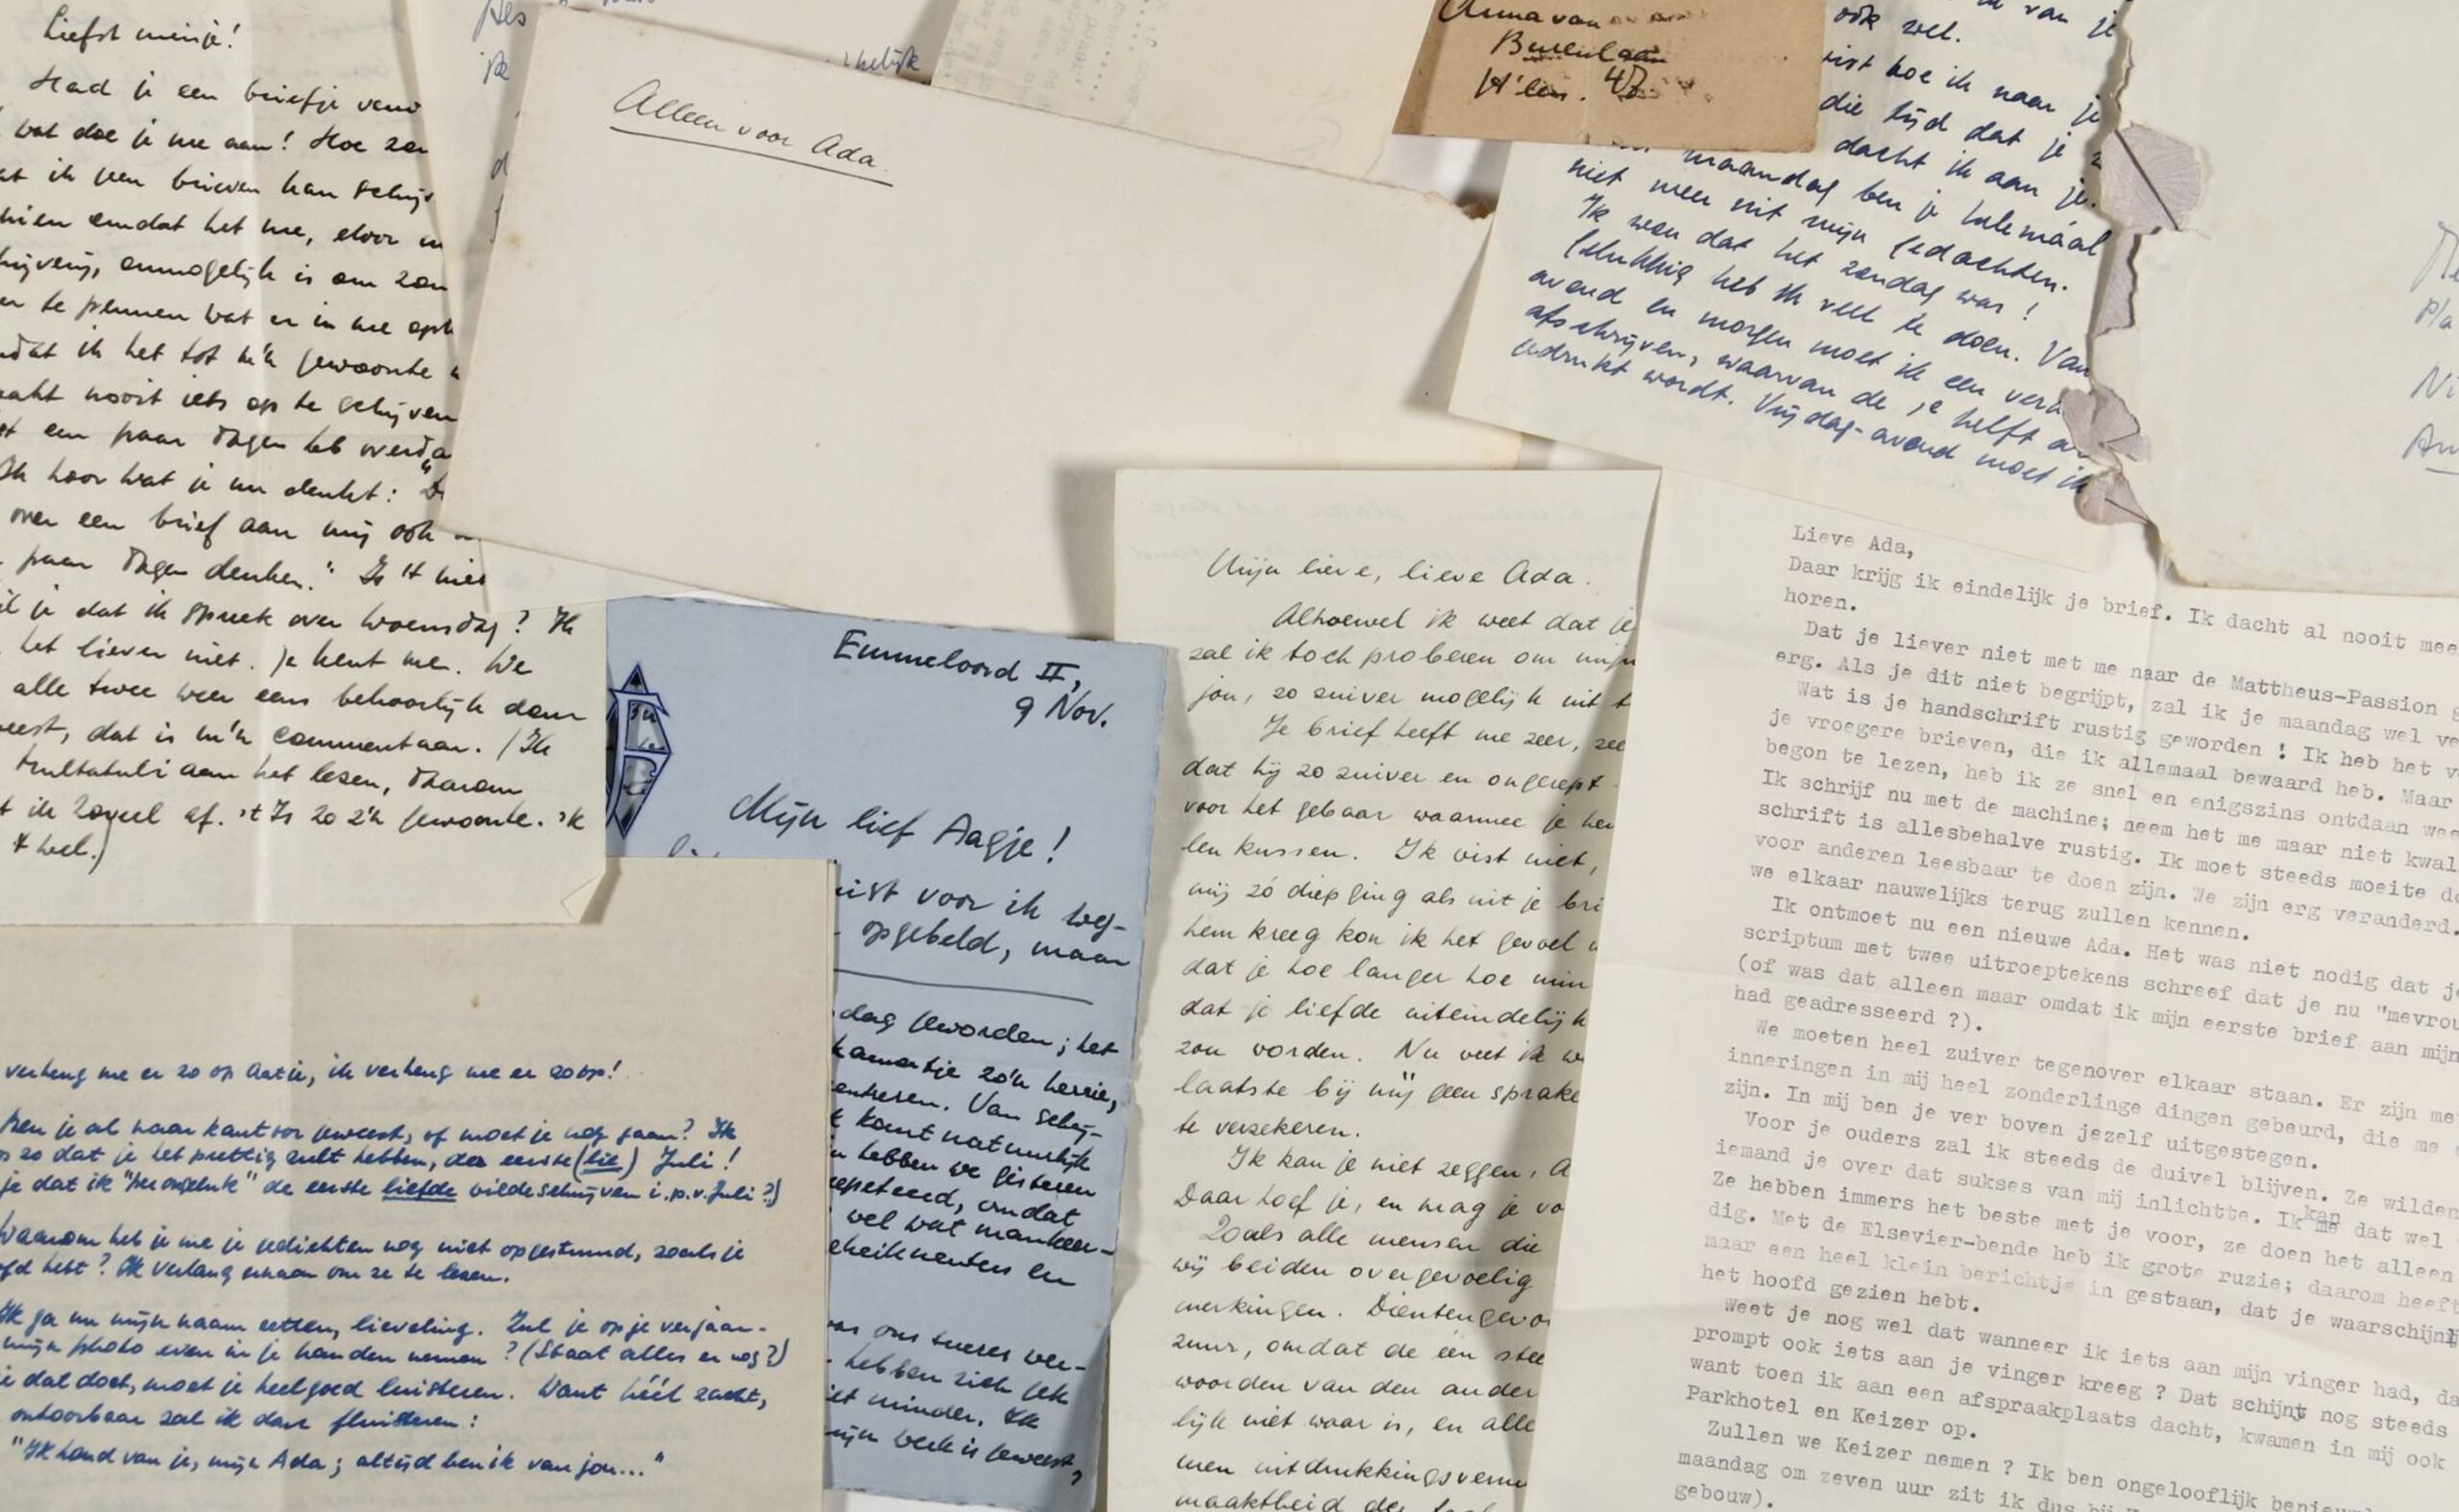 Liefst meisje!
Had je een briefje
wat doe je me aan! Hoe
ik geen brieven kan
omdat het me, door
onmogelijk is om
te pennen wat er in me
ik het tot m'n gewoonte
nooit iets op te schrijven
een paar dagen heb
Ik hoor wat je nu denkt: "
over een brief aan mij ook
paar dagen denken." Is 't niet
je dat ik spreek over woensdag? Ik
het liever niet. Je kent me. We
alle twee weer eens behoorlijk door
dat is m'n commentaar. (Ik
Multatuli aan het lezen, daarom
ik zoveel af. 't Is zo z'n gewoonte. 'k
wel.)
ik
Alleen voor Ada.
Anna van
Burenlaan
H'lem.
van je
ook wel.
hoe ik naar je
die tijd dat je
dacht ik aan je.
maandag ben je helemáál
niet meer uit mijn gedachten.
Ik wou dat het zondag was!
Gelukkig heb ik veel te doen. Van
avond en morgen moet ik een
afschrijven, waarvan de 1e helft
gedrukt wordt. Vrijdag-avond moet ik
Emmeloord II,
9 Nov.
Mijn lief Aagje!
voor ik weg-
opgebeld, maar
dag geworden; het
kamertje zo'n herrie,
Van schrij-
komt natuurlijk
hebben we gisteren
omdat
wel wat mankeer-
en
ons succes
hebben zich
minder. Ik
werk is geweest,
Mijn lieve, lieve Ada.
Alhoewel ik weet dat je
zal ik toch proberen om mijn
jou, zo zuiver mogelijk uit t
Je brief heeft me zeer, zee
dat hij zo zuiver en ongerept
voor het gebaar waarmee je
len kussen. Ik wist niet,
mij zó diep ging als uit je bri
hem kreeg kon ik het gevoel
dat je hoe langer hoe min
dat je liefde uiteindelijk
zou worden. Nu weet ik w
laatste bij mij geen sprake
te verzekeren.
Ik kan je niet zeggen, A
Daar hoef je, en mag je vo
Zoals alle mensen die
wij beiden overgevoelig
merkingen. Dientengevo
zuur, omdat de één stee
woorden van den ander
lijk niet waar is, en alle
men uitdrukkingsverm
maaktheid der
Lieve Ada,
Daar krijg ik eindelijk je brief. Ik dacht al nooit mee
horen.
Dat je liever niet met me naar de Mattheus-Passion g
erg. Als je dit niet begrijpt, zal ik je maandag wel ve
Wat is je handschrift rustig geworden ! Ik heb het v
je vroegere brieven, die ik allemaal bewaard heb. Maar
begon te lezen, heb ik ze snel en enigszins ontdaan weg
Ik schrijf nu met de machine; neem het me maar niet kwal
schrift is allesbehalve rustig. Ik moet steeds moeite do
voor anderen leesbaar te doen zijn. We zijn erg veranderd.
we elkaar nauwelijks terug zullen kennen.
Ik ontmoet nu een nieuwe Ada. Het was niet nodig dat je
scriptum met twee uitroeptekens schreef dat je nu "mevrou
(of was dat alleen maar omdat ik mijn eerste brief aan mijn
had geadresseerd ?).
We moeten heel zuiver tegenover elkaar staan. Er zijn me
inneringen in mij heel zonderlinge dingen gebeurd, die me
zijn. In mij ben je ver boven jezelf uitgestegen.
Voor je ouders zal ik steeds de duivel blijven. Ze wilden
iemand je over dat sukses van mij inlichtte. Ik kan me dat wel
Ze hebben immers het beste met je voor, ze doen het alleen
dig. Met de Elsevier-bende heb ik grote ruzie; daarom heeft
maar een heel klein berichtje in gestaan, dat je waarschijnl
het hoofd gezien hebt.
Weet je nog wel dat wanneer ik iets aan mijn vinger had, da
prompt ook iets aan je vinger kreeg ? Dat schijnt nog steeds
want toen ik aan een afspraakplaats dacht, kwamen in mij ook
Parkhotel en Keizer op.
Zullen we Keizer nemen ? Ik ben ongelooflijk
maandag om zeven uur zit ik dus bij
gebouw).
verheug me er zo op Aatje, ik verheug me er zo op!
Ben je al naar kantoor geweest, of moet je nog gaan? Ik
zo dat je het prettig zult hebben, de eerste (lie) Juli!
je dat ik "per ongeluk" de eerste liefde wilde schrijven i.p.v. Juli?)
Waarom heb je me je gedichten nog niet opgestuurd, zoals je
hebt? Ik verlang ernaar om ze te lezen.
Ik ga nu mijn naam zetten, lieveling. Zul je op je verjaar-
mijn photo even in je handen nemen? (Staat alles er nog?)
je dat doet, moet je heel goed luisteren. Want héél zacht,
onhoorbaar zal ik dan fluisteren:
"Ik houd van je, mijn Ada; altijd ben ik van jou..."